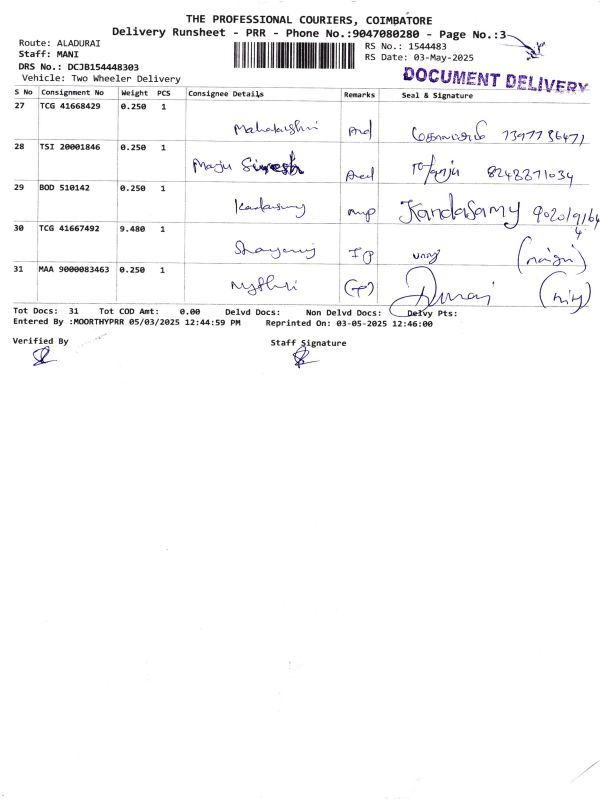 THE PROFESSIONAL COURIERS, COIMBATORE
Delivery Runsheet - PRR - Phone No.:9047080280 - Page No.:3
Route: ALADURAI
RS No.: 1544483
Staff: MANI
RS Date: 03-May-2025
DRS No.: DCJB154448303
Vehicle: Two Wheeler Delivery
DOCUMENT DELIVERY
S No Consignment No Weight PCS Consignee Details Remarks Seal & Signature
27 TCG 41668429 0.250 1
Mahalakshmi 7397736471
28 TSI 20001846 0.250 1
Manju Suresh 8248871034
29 BOD 510142 0.250 1
Kandasamy
30 TCG 41667492 9.480 1
31 MAA 9000083463 0.250 1
Tot Docs: 31 Tot COD Amt: 0.00 Delvd Docs: Non Delvd Docs: Delvy Pts:
Entered By :MOORTHYPRR 05/03/2025 12:44:59 PM Reprinted On: 03-05-2025 12:46:00
Verified By Staff Signature